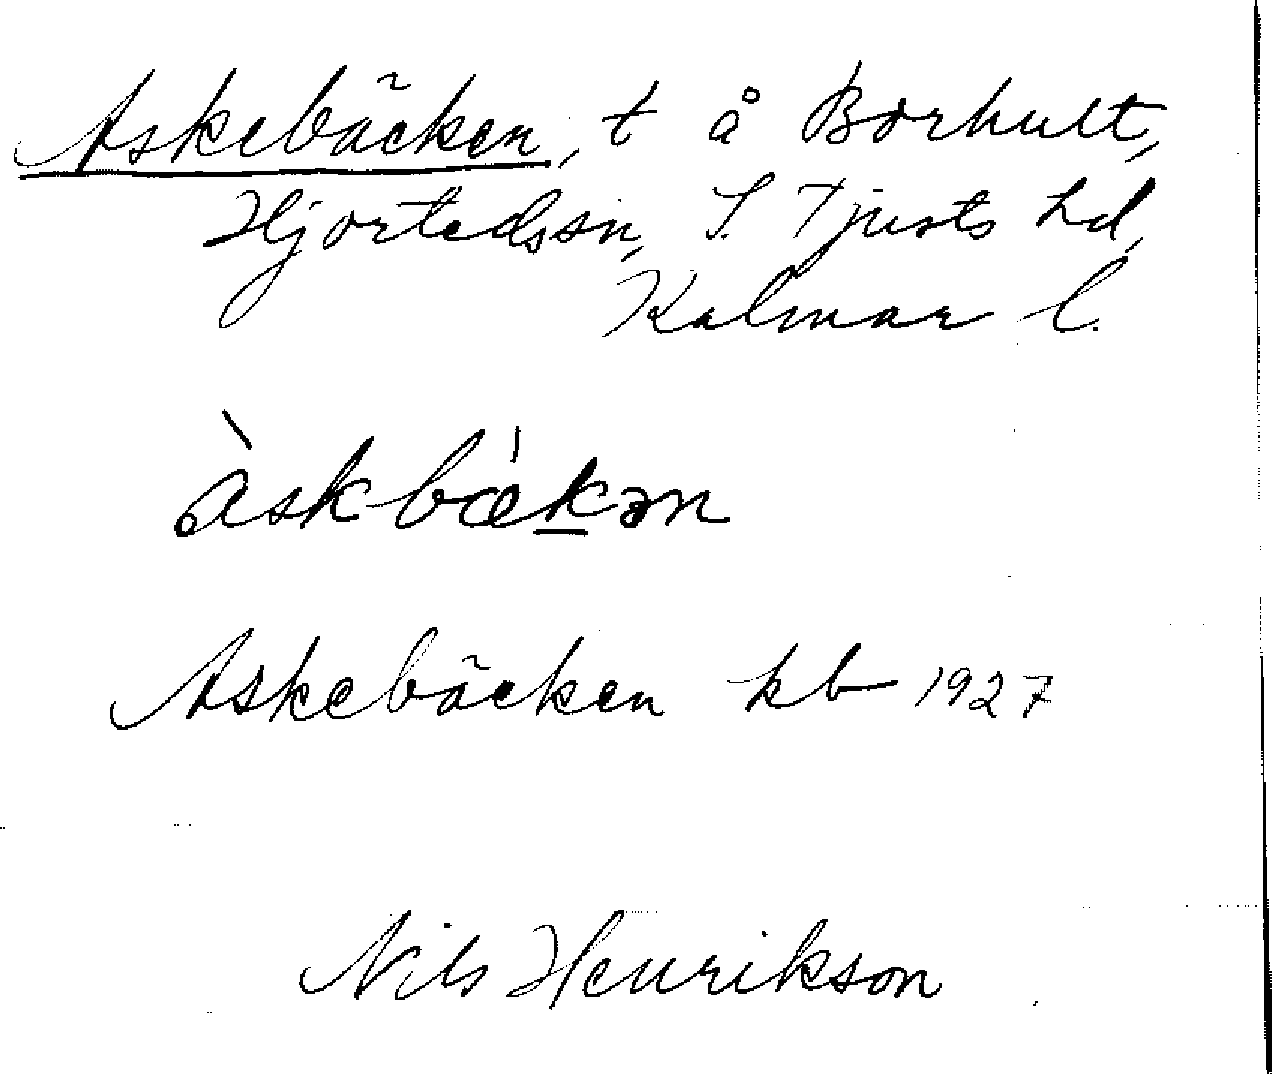 Askebäcken, t å Borhult,
Hjorteds sn, S. Tjusts hd,
Kalmar l.
àskbæ̀kən
Askebäcken kb 1927
Nils Henrikson